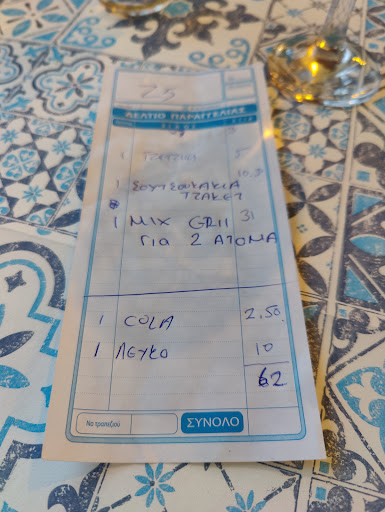 25
ΔΕΛΤΙΟ ΠΑΡΑΓΓΕΛΙΑΣ
3
1 TZATZIKI 5
1 ΣΟΥΤΖΟΥΚΑΚΙΑ 10.5
ΤΖΑΚΕΤ
1 MIX GRIL 31
ΓΙΑ 2 ΑΤΟΜΑ
1 COLA 2.50
1 ΛΕΥΚΟ 10
62
Νο τραπεζιού ΣΥΝΟΛΟ